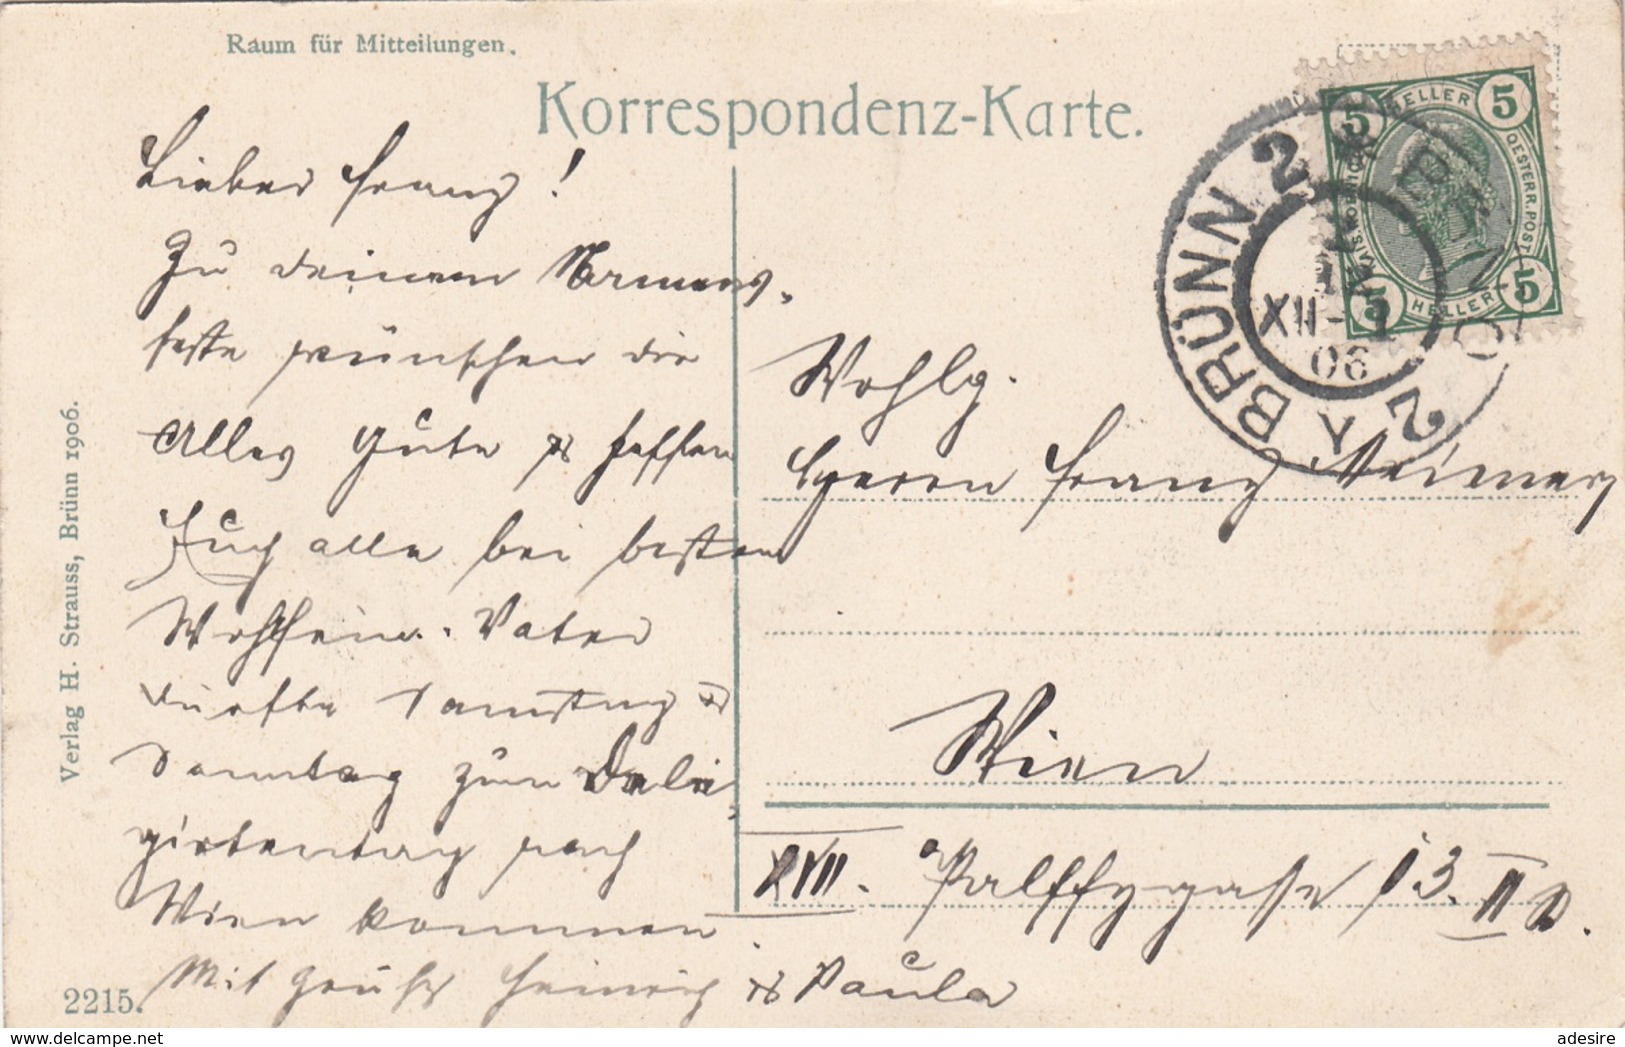 Raum für Mitteilungen.
Korrespondenz-Karte.
Lieber Franz!
Zu deinem Namens-
feste wünschen dir
Alles Gute & hoffen
Euch alle bei bestem
Wohlsein. Vater
dürfte Samstag &
Sonntag zum Dele-
girtentag nach
Wien kommen.
Mit Gruß Heinrich & Paula
Wohlg.
Herrn Franz
Wien
XVII. Palffygasse 13. II
5 HELLER 5
KAIS. KÖNIGL. OESTERR. POST
5 HELLER 5
BRÜNN 2
BRNO 2
XII-
06
Verlag H. Strauss, Brünn 1906.
2215.
adesire